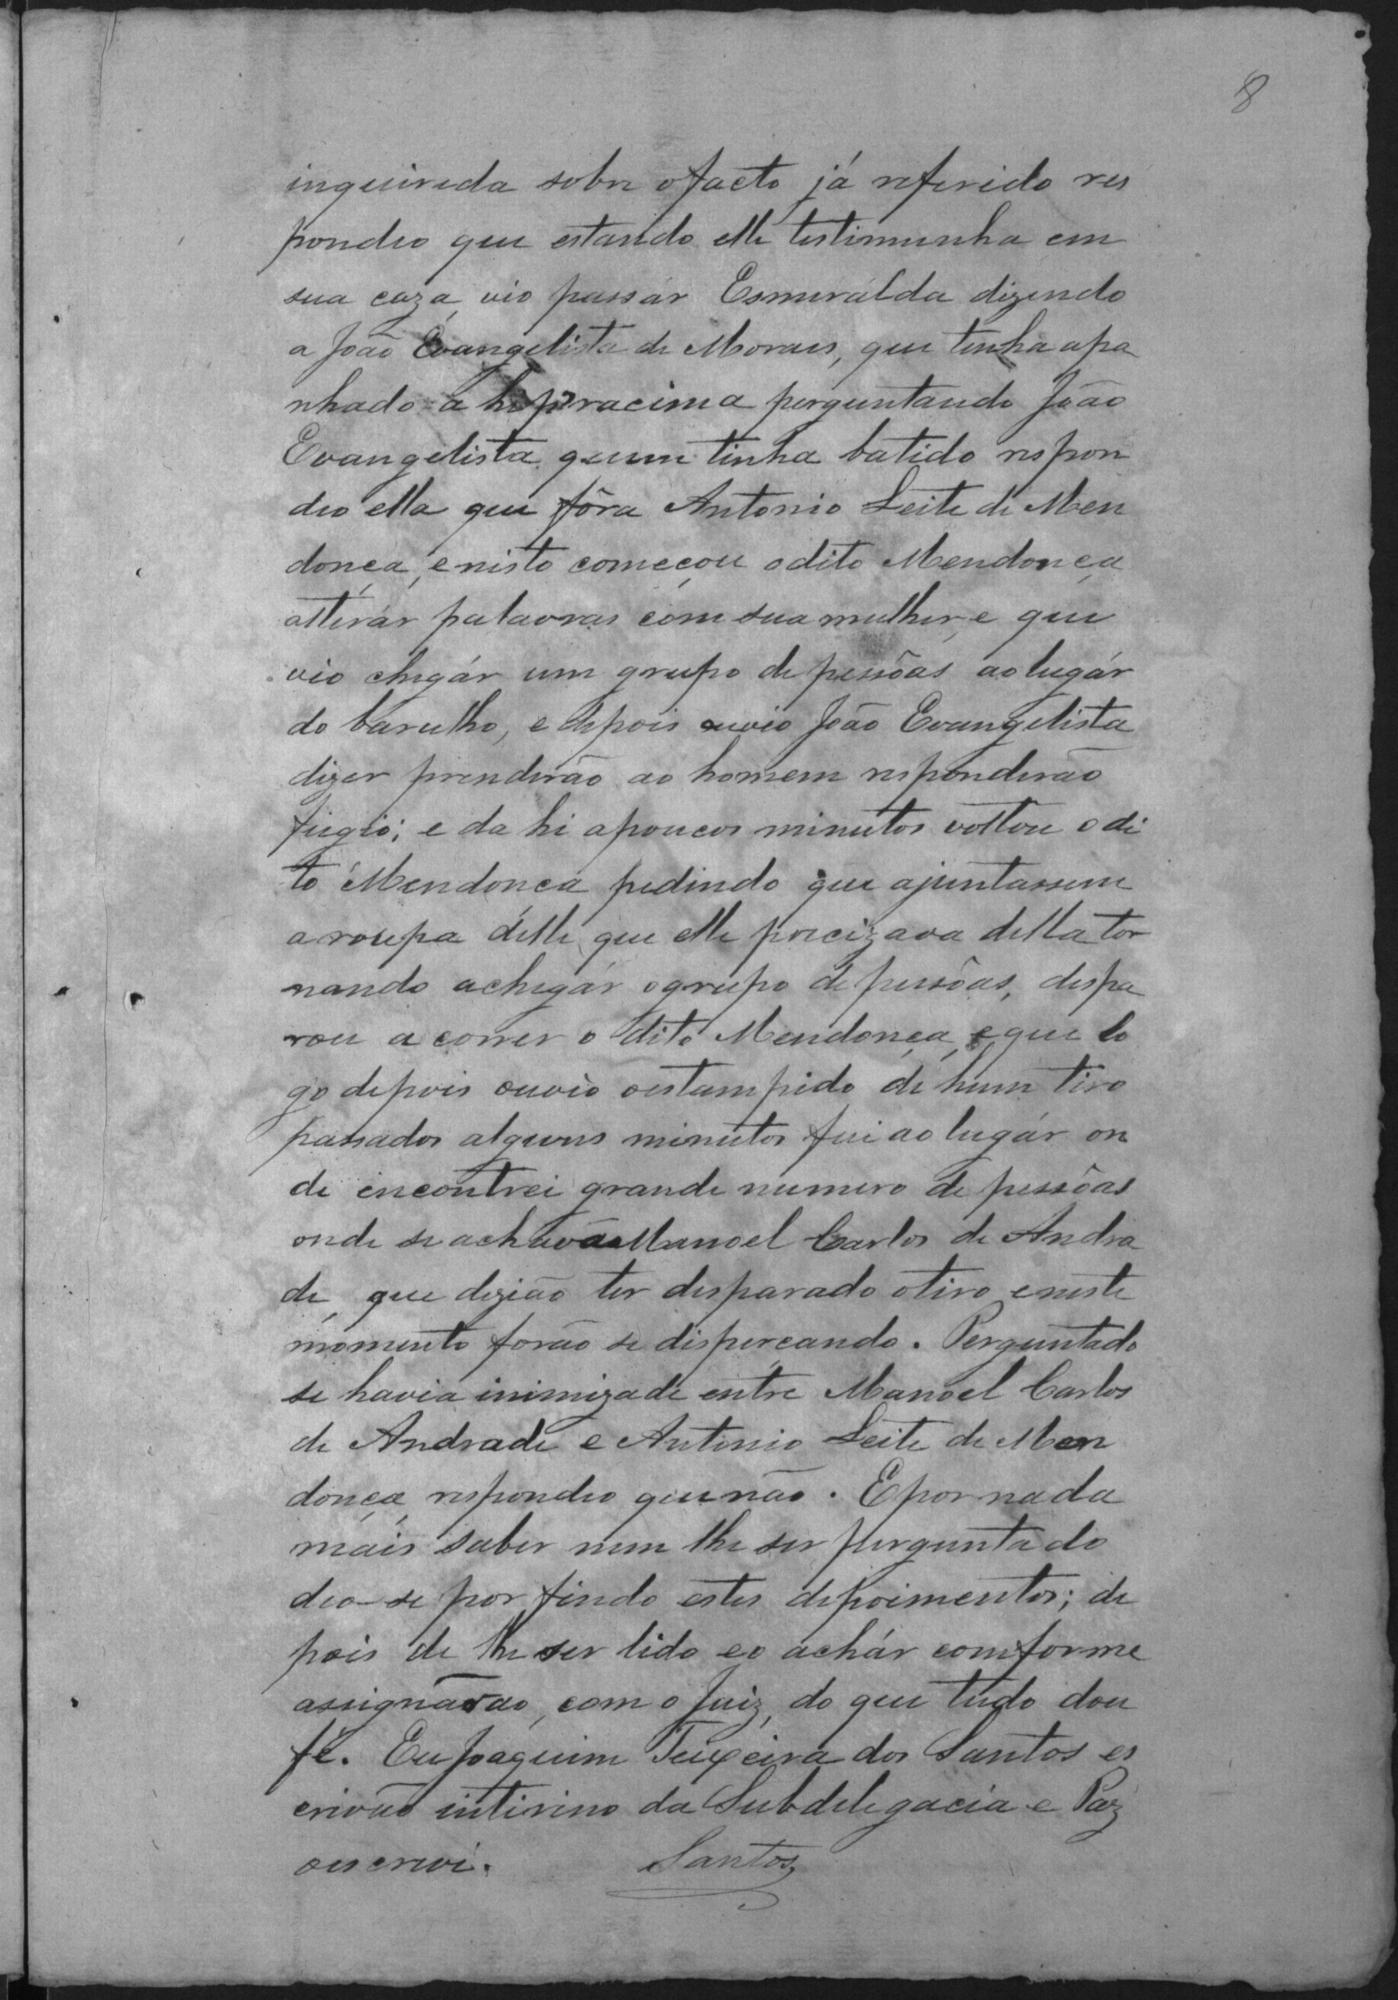 8
inquirida sobre o facto já referido res
pondeo que estando elle testimunha em
sua caza, vio passár Esmerálda dizendo
a João Evangelista de Moraes, que tinha apa
nhado a hi pracima perguntando João
Evangelista quem tinha batido respon
deo ella que fôra Antonio Leite de Men
donça, e nisto começou o dito Mendonça
altirár palavras com sua mulher, e que
vio chegár um grupo de pessôas ao lugár
do barulho, e depois ouvio João Evangelista
dizer prenderão ao homem responderão
fugio; e da hi a poucos minutos voltou o di
to Mendonça pedindo que ajuntassem
a roupa délle, que elle precizava della tor
nando a chegár o grupo de pessôas, dispa
rou a correr o dito Mendonça, e que lo
go depois ouvio o estampido de hum tiro
passados alguns minutos fui ao lugár on
de encontrei grande numero de pessôas
onde se achavão Manoel Carlos de Andra
de, que dizião ter desparado o tiro e neste
momento forão se disperçando. Perguntado
se havia inimizade entre Manoel Carlos
de Andrade e Antonio Leite de Men
donça, respondeo que não. E por nada
mais saber nem lhe ser perguntado
deo-se por findo estes depoimentos; de
pois de lhe ser lido e o achár comforme
assignarão, com o Juiz, do que tudo dou
fé. Eu Joaquim Teixeira dos Santos es
crivão intirino da Subdelegacia e Paz
o escrivi. Santos